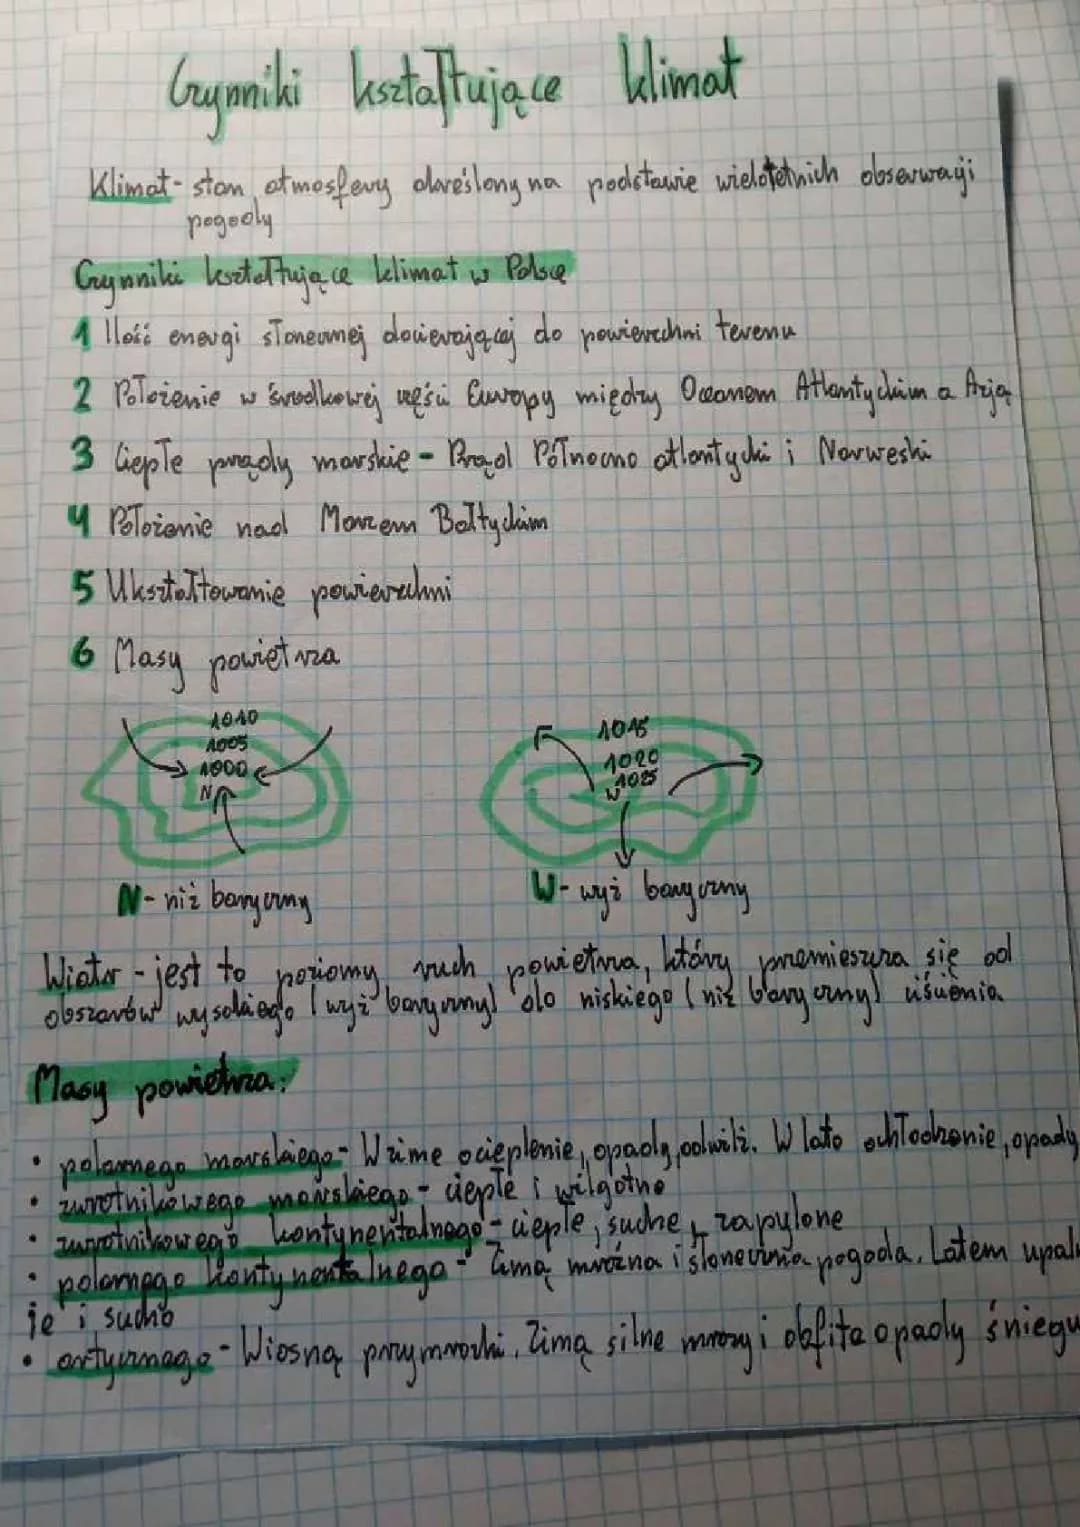 Czynniki kształtujące klimat
Klimat - stan atmosfery określony na podstawie wieloletnich obserwacji
pogody
Czynniki kształtujące klimat w Polsce
1 Ilość energi słonecznej docierającej do powierzchni terenu
2 Położenie w środkowej części Europy między Oceanem Atlantyckim a Azją
3 Ciepłe prądy morskie - Prąd Północno atlantycki i Norweski
4 Położenie nad Morzem Bałtyckim
5 Ukształtowanie powierzchni
6 Masy powietrza
1010
1005
1000
N
1015
1020
1025
W
N - niż baryczny
W - wyż baryczny
Wiatr - jest to poziomy ruch powietrza, który przemieszcza się od
obszarów wysokiego (wyż baryczny) do niskiego (niż baryczny) ciśnienia
Masy powietrza:
• polarnego morskiego - W zime ocieplenie, opady, odwilż. W lato ochłodzenie, opady
• zwrotnikowego morskiego - ciepłe i wilgotne
• zwrotnikowego kontynentalnego - ciepłe, suche, zapylone
• polarnego kontynentalnego - Zimą mroźna i słoneczna pogoda. Latem upal
ie i sucho
• artycznego - Wiosną przymrozki, Zimą silne mrozy i obfite opady śniegu